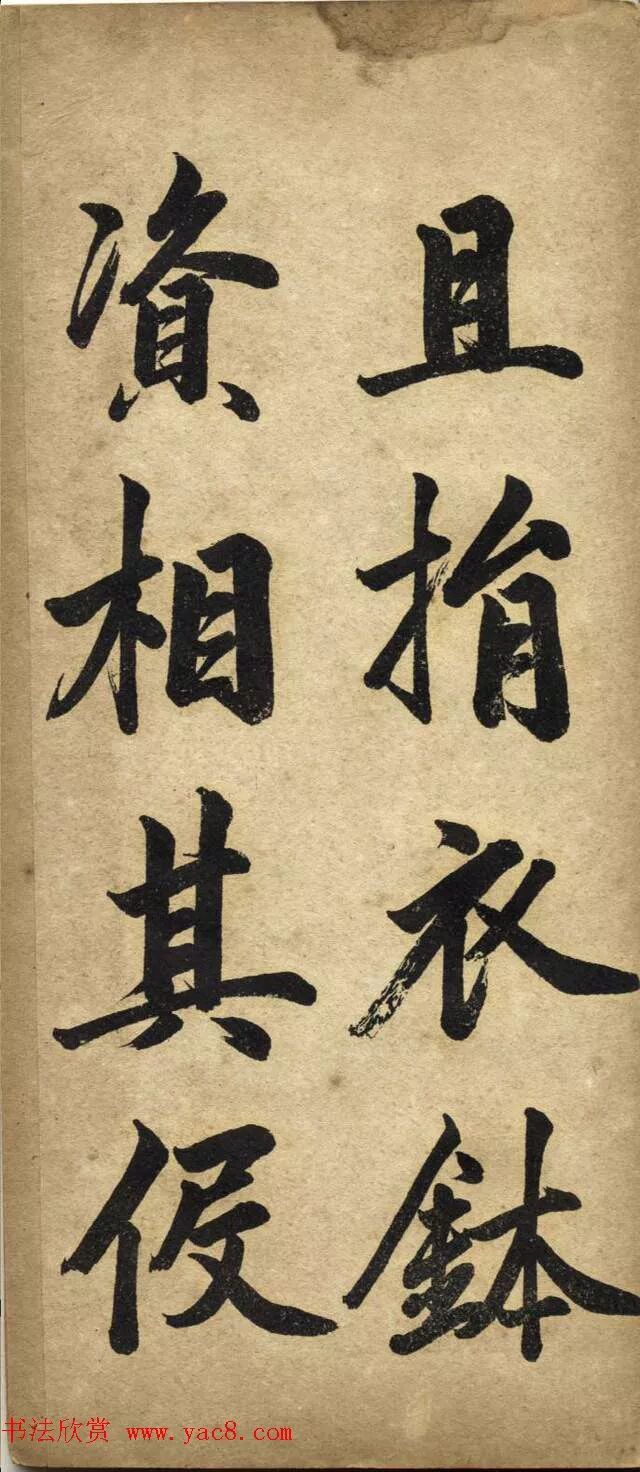 且捐衣鉢
資相其伇
书法欣赏 www.yac8.com